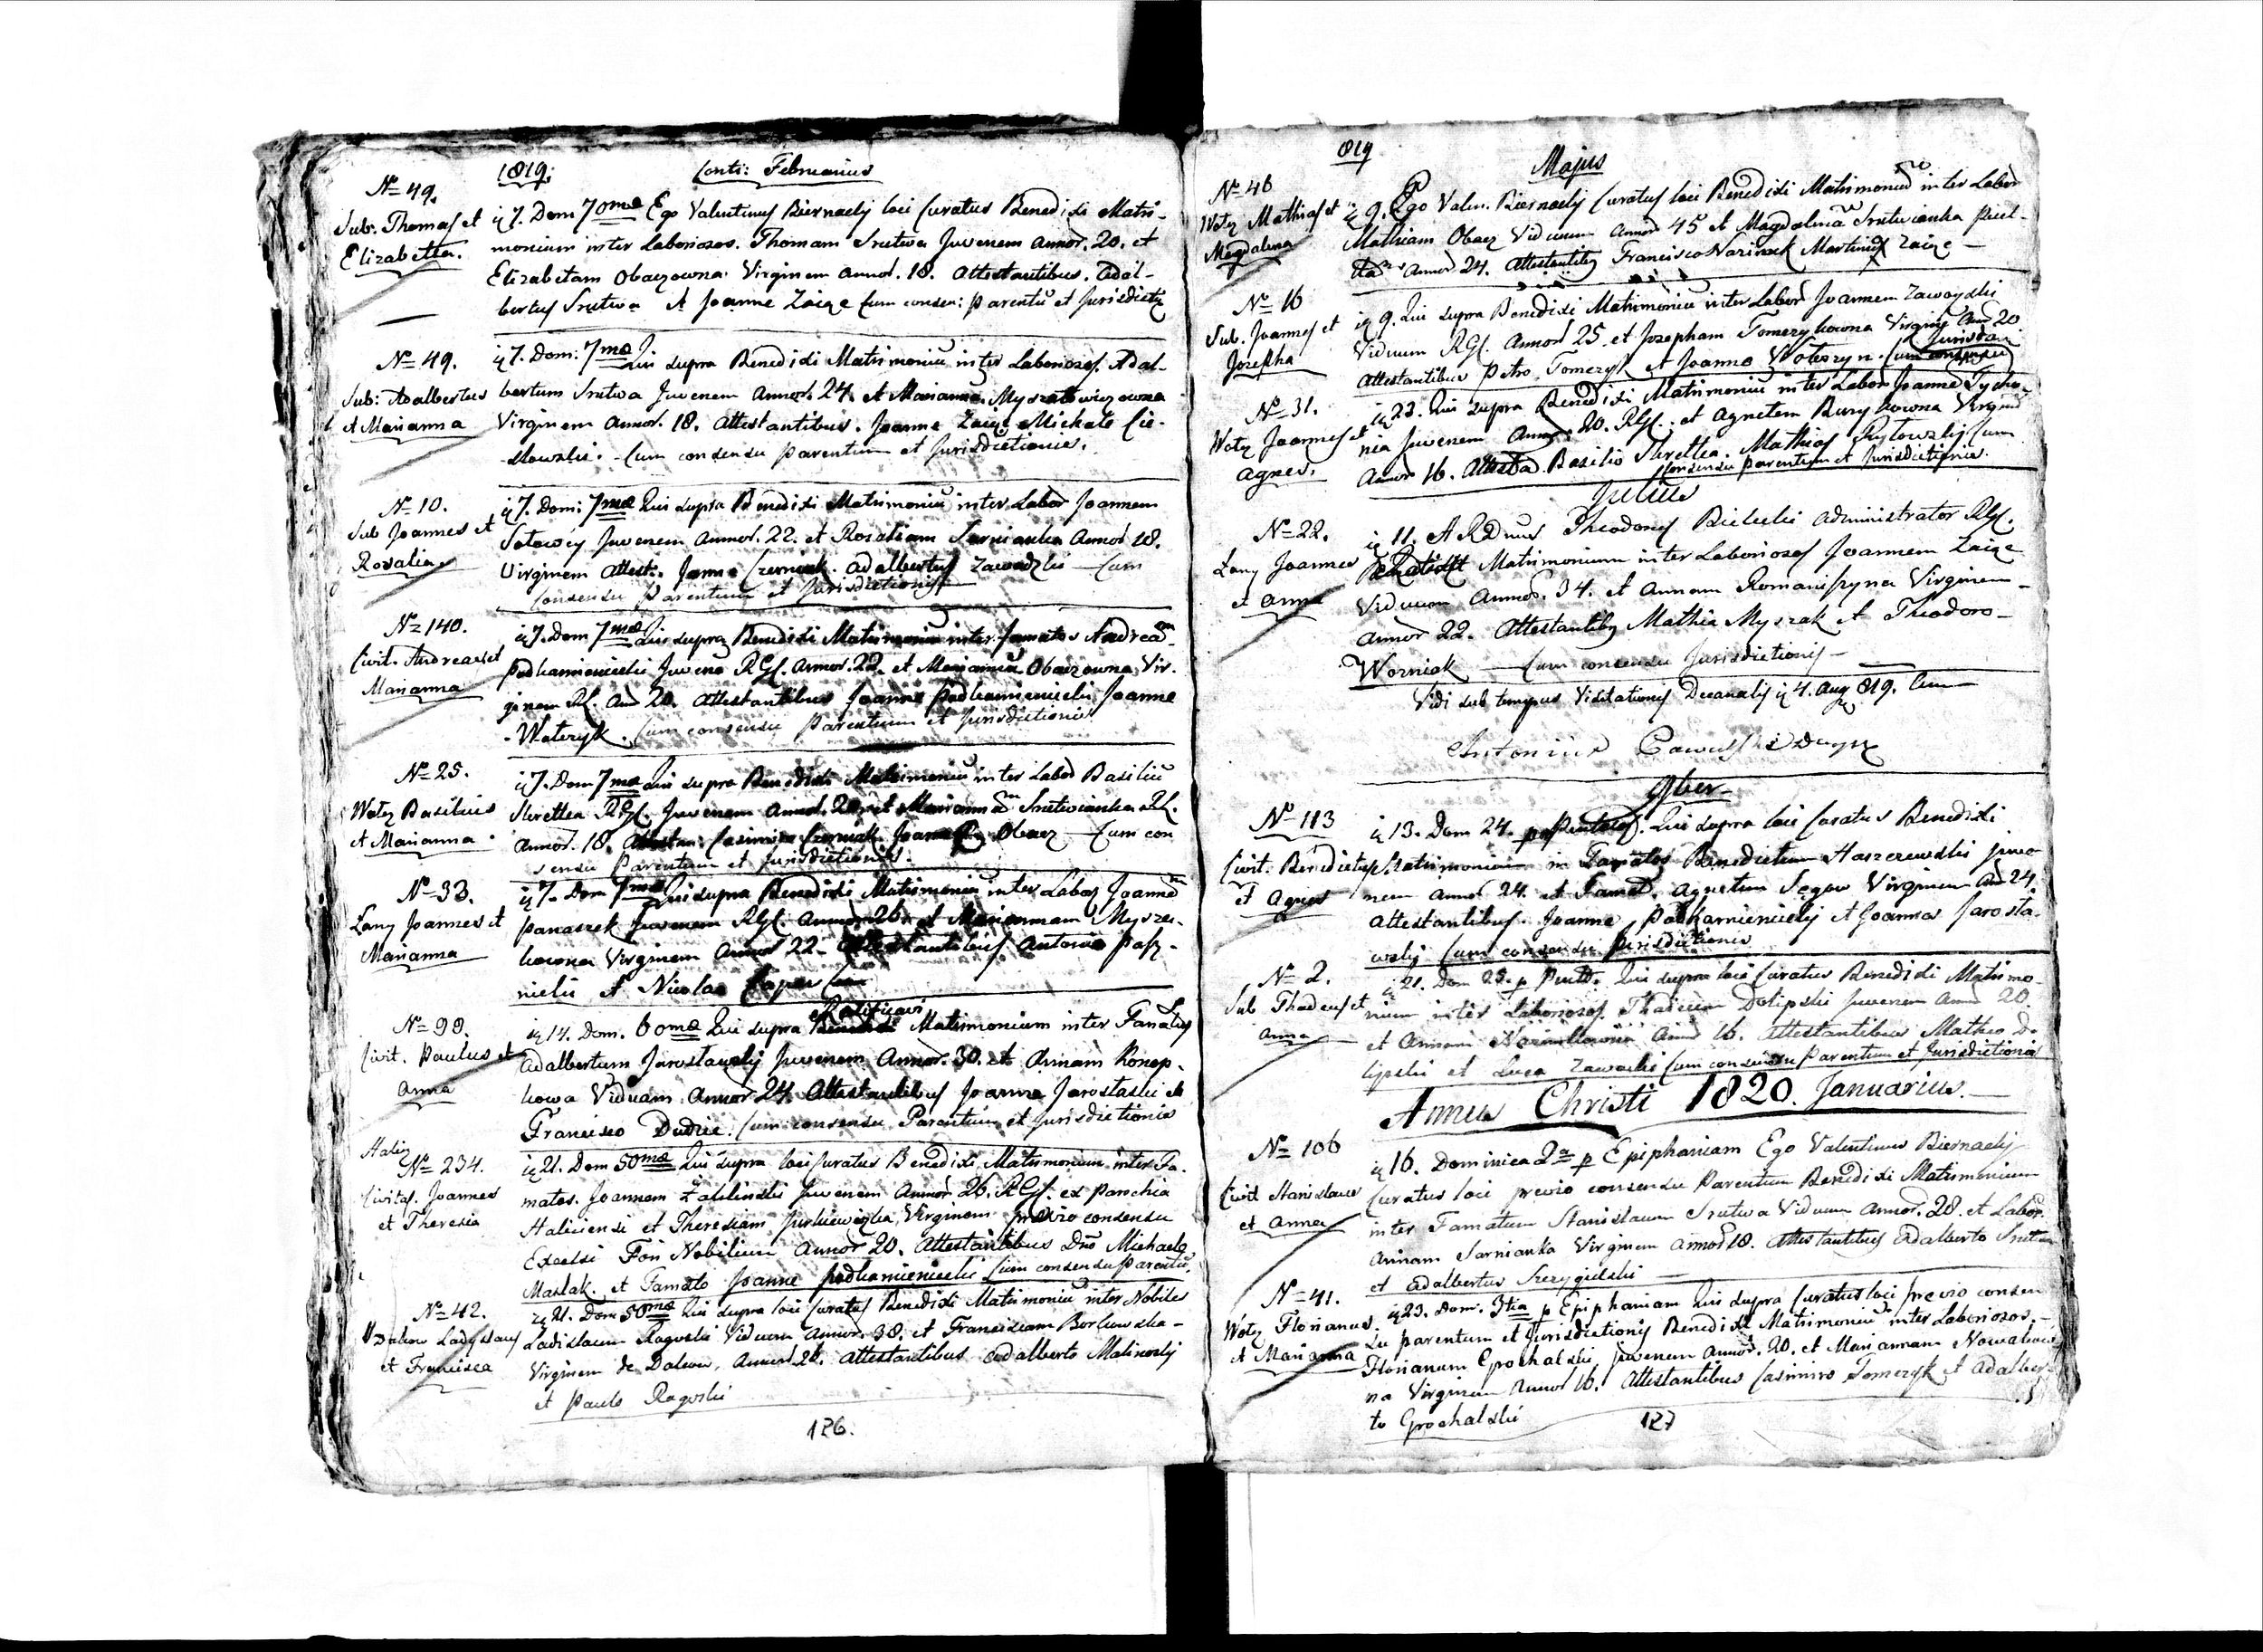 1819. Conti: Februarius
No 49.
Sub: Thomas et
Elizabetha.
7. Dom 70ma Ego Valentinus Biernacky loci Curatus Benedixi Matri-
monium inter Laboriosos. Thomam Srutwa Juvenem annor. 20. et
Elizabetam Obaczowna Virginem annor. 18. attestantibus. Adal-
bertus Srutwa et Joanne Zaiąc Cum consen: Parentu et Jurisdicty
No 49.
Sub: Adalbertus
et Marianna
7. Dom: 7ma Qui supra Benedixi Matrimoniu inter Laboriosos. Adal-
bertum Srutwa Juvenem Annor. 24. et Mariannam
Virginem annor. 18. attestantibus. Joanne Zaiąc Michale Cie-
Cum consensu parentum et Jurisdictionis.
No 10.
Sub Joannes et
Rosalia
7. Dom: 7ma Qui supra Benedixi Matrimoniu inter Labor Joannem
Juvenem annor. 22. et Rosaliam Sarnianka Annor 18.
Virginem attest: Joanne Czerniak. Adalbertus Zawadzki Cum
Consensu Parentum et Jurisdictionis
No 140.
Civit. Andreas et
Marianna
7. Dom 7ma Qui supra Benedixi Matrimonium inter Famatos Andream
Podkamieniecki Juvene RGl. Annor. 22. et Marianna Obaczowna Vir-
ginem Rl. Ann 20. attestantibus Joanne Podkamieniecki Joanne
Cum consensu Parentum et Jurisdictionis
No 25.
Woty Basilius
et Marianna
7. Dom 7ma Qui supra Benedixi Matrimoniu inter Labor Basiliu
RGl. Juvenem annor. 20. et Marianna Srutwianka Rl.
annor. 18. Casimiro Czerniak. Joanne Obacz Cum con
sensu Parentum et Jurisdictionis.
No 33.
Lany Joannes et
Marianna
7. Dom 7ma Qui supra Benedixi Matrimoniu inter Labor Joannem
Panaszek Juvenem RGl. annor 26. et Mariannam Mysza-
kowna Virginem annor 22. attestantibus Antonio
et Nicolao
No 99.
Civit. Paulus et
Anna
Ratificavi
14. Dom. 60ma Qui supra Matrimonium inter Famatos
Adalbertum Jarosławsky Juvenem Annor. 30. et Annam Konop-
kowa Viduam Annor 24. Attestantibus Joanne Jarosławski et
Francisco Dudzic. Cum consensu Parentum et Jurisdictionis
Halicz
No 234.
Civitas. Joannes
et Theresia
21. Dom 50ma Qui supra loci Curatus Benedixi Matrimonium inter Fa-
matos. Joannem Juvenem Annor 26. RGl. ex Parochia
Haliciensi et Theresiam Virginem previo consensu
Excelsi Annor 20. attestantibus Dno Michaele
Maslak. et Famato Joanne Podkamieniecki Cum consensu Parentu.
No 42.
Daliow Ladyslaus
et Francisca
21. Dom 50ma Qui supra loci Curatus Benedixi Matrimoniu inter Nobiles
Ladislaum Rogoski Viduum annor. 38. et Franciscam
Virginem de Daliow, annor 26. attestantibus Adalberto Malinosky
et Paulo Rogoski
126.
819
Majus
No 46
Woty Mathias et
Magdalena
9. Ego Valen. Biernacky Curatus loci Benedixi Matrimoniu inter Labor
Mathiam Obacz Viduum annor 45 et Magdalena Srutwianka Puel-
annor 24. attestantibus Francisco Martinus Zaiąc
No 16
Sub. Joannes et
Josepha
9. Qui supra Benedixi Matrimoniu inter Labor Joannem Zawoyski
Viduum RGl. Annor 25. et Josepham Tomczykowna Virgine Ann 20
attestantibus Petro Tomczyk et Joanne Wołoszyn. Cum consensu
Jurisdic
No 31.
Woty Joannes et
Agnes.
23. Qui supra Benedixi Matrimoniu inter Labor Joanne
Juvenem annor: 20. RGl. et Agnetem Burykowna Virgine
Annor 16. attesta Basilio Mathias Cum
Consensu parentum et Jurisdictionis.
Julius
No 22.
Lany Joannes
et Anna
11. A Rdnus Theodorus Bielecki Administrator RGl.
Matrimonium inter Laboriosos Joannem Zaiąc
Viduum Annor. 34. et Annam Virginem
annor 22. attestantibus Mathia Myszak et Theodoro
Worniak Cum consensu Jurisdictionis
Vidi sub tempus Visitationis Decanalis 4. Aug 819.
Antonius
9ber
No 113
Civit. Benedictus
et Agnes
13. Dom 24. post Pentecos. Qui supra loci Curatus Benedixi
Matrimonium in Famatos Benedictum Haszczewski Juve
nem annor 24. et Famat. Agnetem Virginem Ann 24
attestantibus. Joanne Podkamieniecky et Joanne Jarosła-
wsky Cum consensu Jurisdictionis
No 2.
Sub Thadeus et
Anna
21. Dom 25. p Pent. Qui supra loci Curatus Benedixi Matrimo-
nium inter Laboriosos. Thadeum Dolipski Juvenem Ann 20.
et Annam Ann 16. attestantibus Matheo Do-
lipski et Luca Zawacki Cum consensu Parentum et Jurisdictionis
Annus Christi 1820. Januarius.
No 106
Civit Stanislaus
et Anna
16. Dominica 2a p Epiphaniam Ego Valentinus Biernacky
Curatus loci previo consensu Parentum Benedixi Matrimonium
inter Famatum Stanislaum Srutwa Viduum annor. 28. et Labor.
Annam Sarnianka Virginem annor 18. attestantibus Adalberto Srutwa
et Adalbertus Szczygielski
No 41.
Woty Florianus.
et Marianna
23. Dom. 3tia p Epiphaniam Qui supra Curatus loci previo consen
su parentum et Jurisdictionis Benedixi Matrimoniu inter Laboriosos.
Florianum Grochalski Juvenem annor. 20. et Mariannam Nowakow-
na Virginem annor 16. attestantibus Casimiro Tomczyk et Adalber-
to Grochalski
127